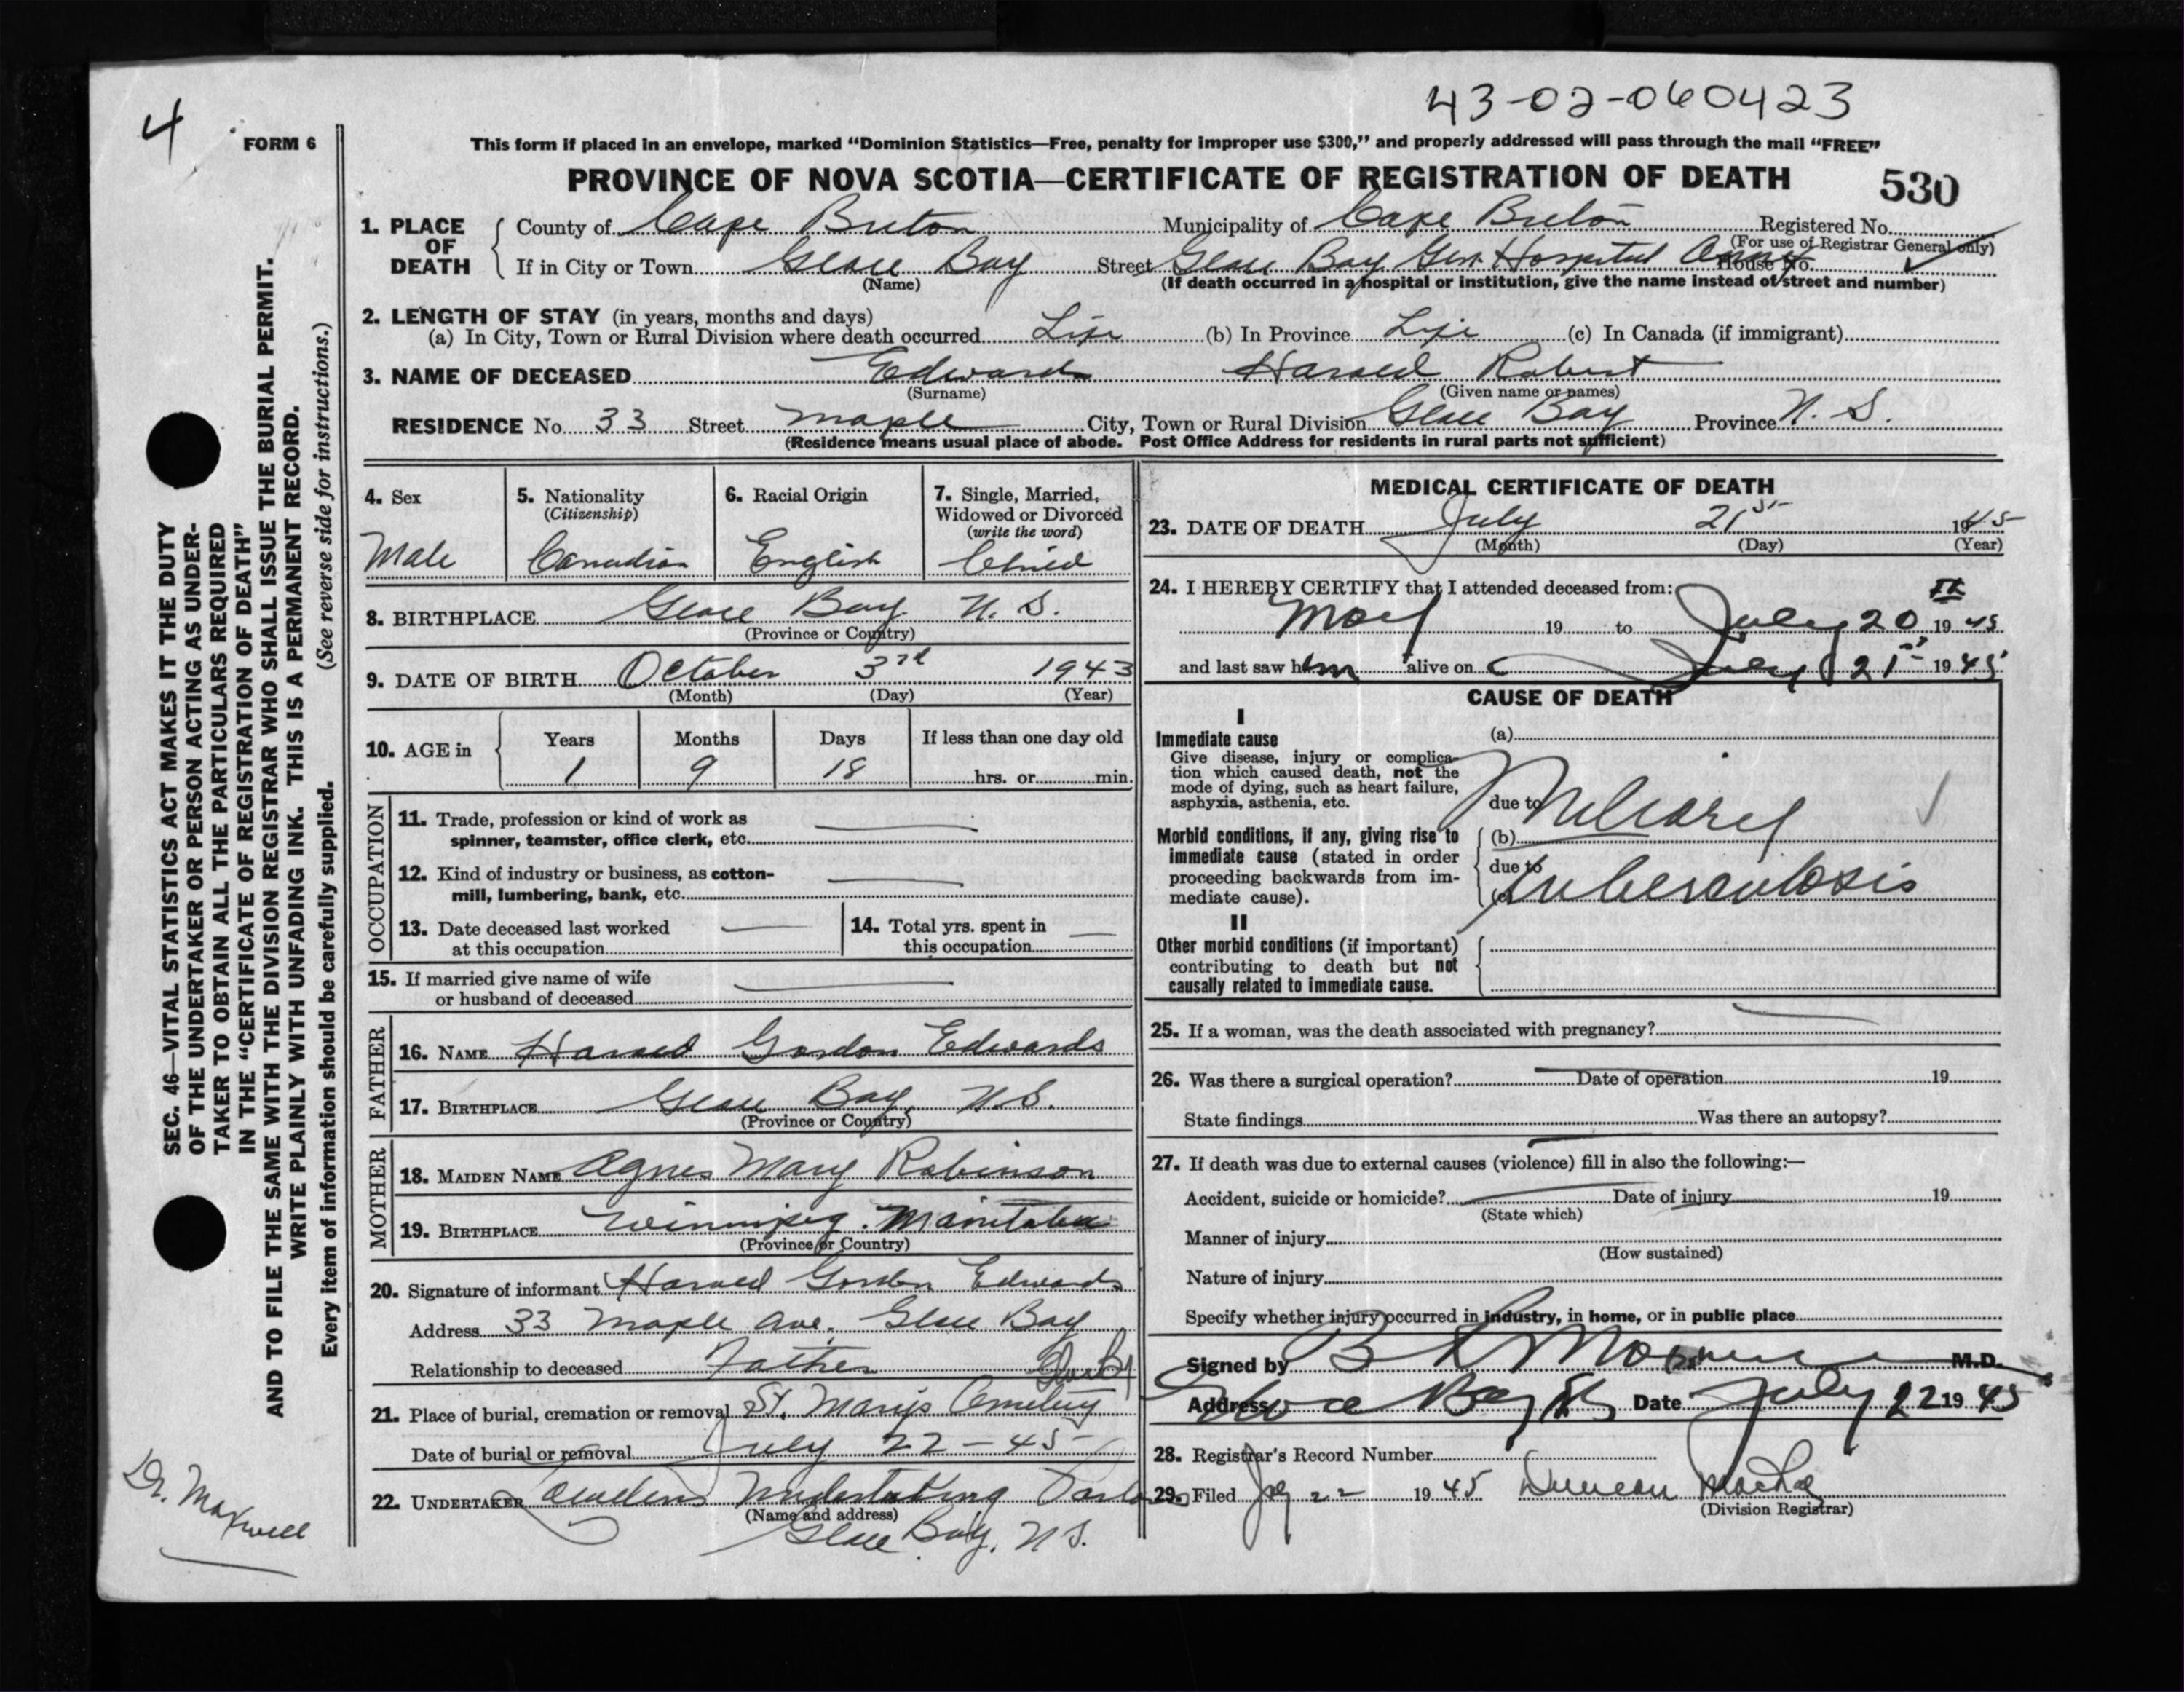 43-02-060423
4
FORM 6
This form if placed in an envelope, marked "Dominion Statistics—Free, penalty for improper use $300," and properly addressed will pass through the mail "FREE"
PROVINCE OF NOVA SCOTIA—CERTIFICATE OF REGISTRATION OF DEATH
530
1. PLACE OF DEATH
County of Cape Breton Municipality of Cape Breton Registered No.
(For use of Registrar General only)
If in City or Town Glace Bay Street Glace Bay Gen. Hospital House No.
(Name) (If death occurred in a hospital or institution, give the name instead of street and number)
2. LENGTH OF STAY (in years, months and days)
(a) In City, Town or Rural Division where death occurred Life (b) In Province Life (c) In Canada (if immigrant)
3. NAME OF DECEASED Edwards Harold Robert
(Surname) (Given name or names)
RESIDENCE No. 33 Street Maple City, Town or Rural Division Glace Bay Province N. S.
(Residence means usual place of abode. Post Office Address for residents in rural parts not sufficient)
4. Sex
Male
5. Nationality
(Citizenship)
Canadian
6. Racial Origin
English
7. Single, Married,
Widowed or Divorced
(write the word)
Child
8. BIRTHPLACE Glace Bay N. S.
(Province or Country)
9. DATE OF BIRTH October 3rd 1943
(Month) (Day) (Year)
10. AGE in
Years Months Days If less than one day old
1 9 18 hrs. or min.
OCCUPATION
11. Trade, profession or kind of work as
spinner, teamster, office clerk, etc.
12. Kind of industry or business, as cotton-
mill, lumbering, bank, etc.
13. Date deceased last worked
at this occupation
14. Total yrs. spent in
this occupation
15. If married give name of wife
or husband of deceased
FATHER
16. NAME Harold Gordon Edwards
17. BIRTHPLACE Glace Bay, N.S.
(Province or Country)
MOTHER
18. MAIDEN NAME Agnes Mary Robinson
19. BIRTHPLACE Winnipeg. Manitoba
(Province or Country)
20. Signature of informant Harold Gordon Edwards
Address 33 Maple Ave. Glace Bay
Relationship to deceased Father
21. Place of burial, cremation or removal St. Marys Cemetery
Date of burial or removal July 22-45
22. UNDERTAKER Undertaking
(Name and address)
Glace Bay, N S.
MEDICAL CERTIFICATE OF DEATH
23. DATE OF DEATH July 21st 1945
(Month) (Day) (Year)
24. I HEREBY CERTIFY that I attended deceased from:
May 19 to July 20th 1945
and last saw him alive on July 21st 1945
CAUSE OF DEATH
I
Immediate cause
Give disease, injury or complica-
tion which caused death, not the
mode of dying, such as heart failure,
asphyxia, asthenia, etc.
(a)
due to Miliary
Morbid conditions, if any, giving rise to
immediate cause (stated in order
proceeding backwards from im-
mediate cause).
(b)
due to
(c) tuberculosis
II
Other morbid conditions (if important)
contributing to death but not
causally related to immediate cause.
25. If a woman, was the death associated with pregnancy?
26. Was there a surgical operation? Date of operation 19
State findings Was there an autopsy?
27. If death was due to external causes (violence) fill in also the following:—
Accident, suicide or homicide? Date of injury 19
(State which)
Manner of injury
(How sustained)
Nature of injury
Specify whether injury occurred in industry, in home, or in public place
Signed by M.D.
Address Glace Bay NS Date July 22 1945
28. Registrar's Record Number
29. Filed July 22 1945 Duncan
(Division Registrar)
SEC. 46—VITAL STATISTICS ACT MAKES IT THE DUTY
OF THE UNDERTAKER OR PERSON ACTING AS UNDER-
TAKER TO OBTAIN ALL THE PARTICULARS REQUIRED
IN THE "CERTIFICATE OF REGISTRATION OF DEATH"
AND TO FILE THE SAME WITH THE DIVISION REGISTRAR WHO SHALL ISSUE THE BURIAL PERMIT.
WRITE PLAINLY WITH UNFADING INK. THIS IS A PERMANENT RECORD.
Every item of information should be carefully supplied. (See reverse side for instructions.)
Dr. Maxwell